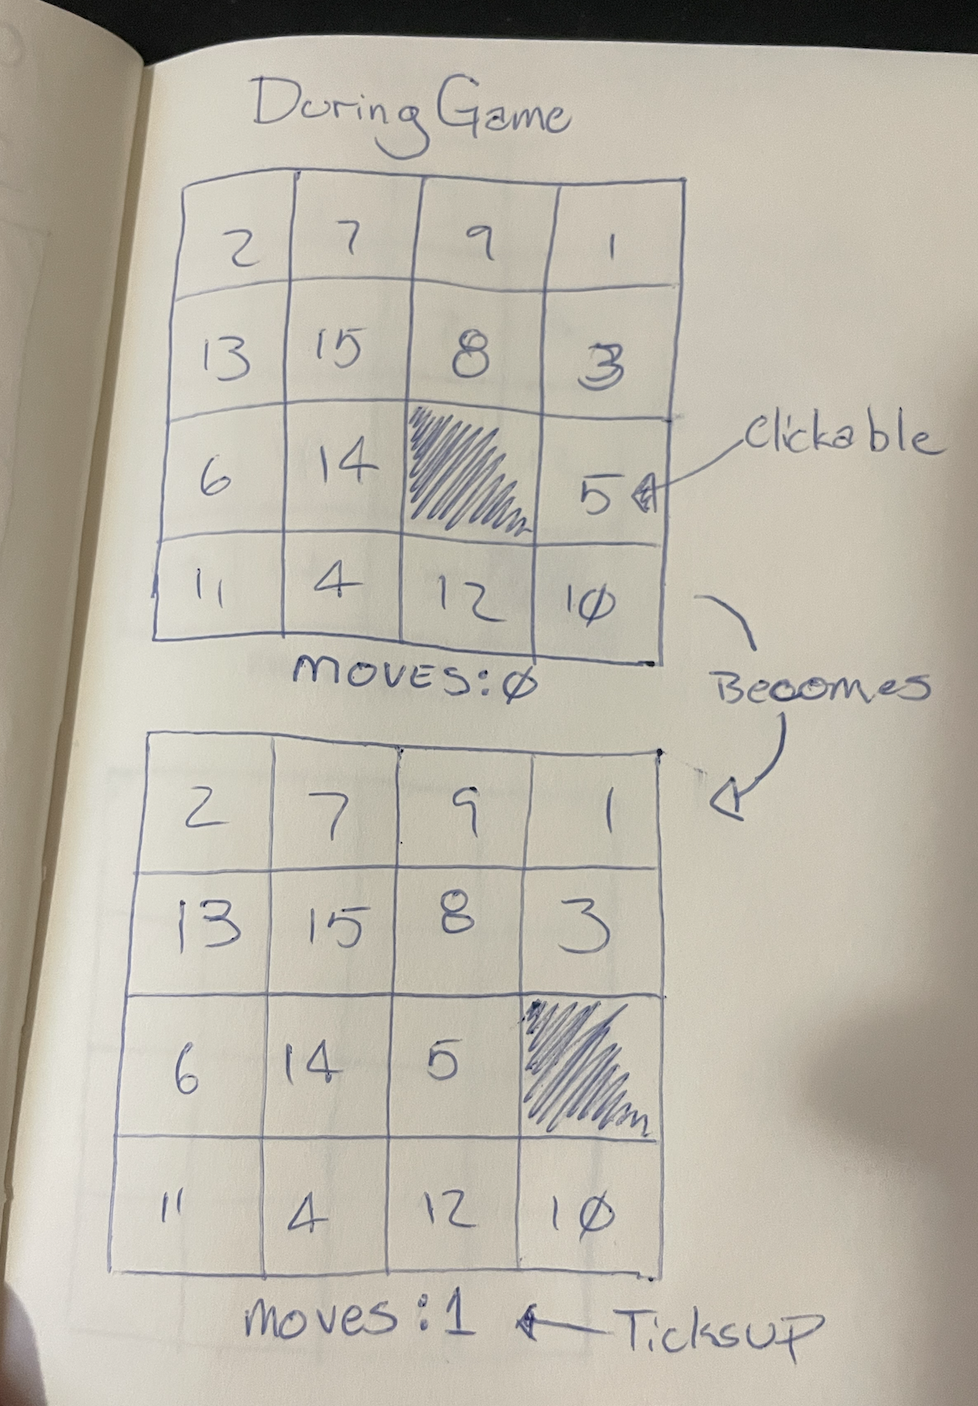 During Game
2 7 9 1
13 15 8 3
6 14 5
Clickable
11 4 12 10
MOVES: 0
Becomes
2 7 9 1
13 15 8 3
6 14 5
11 4 12 10
moves: 1
Ticks up